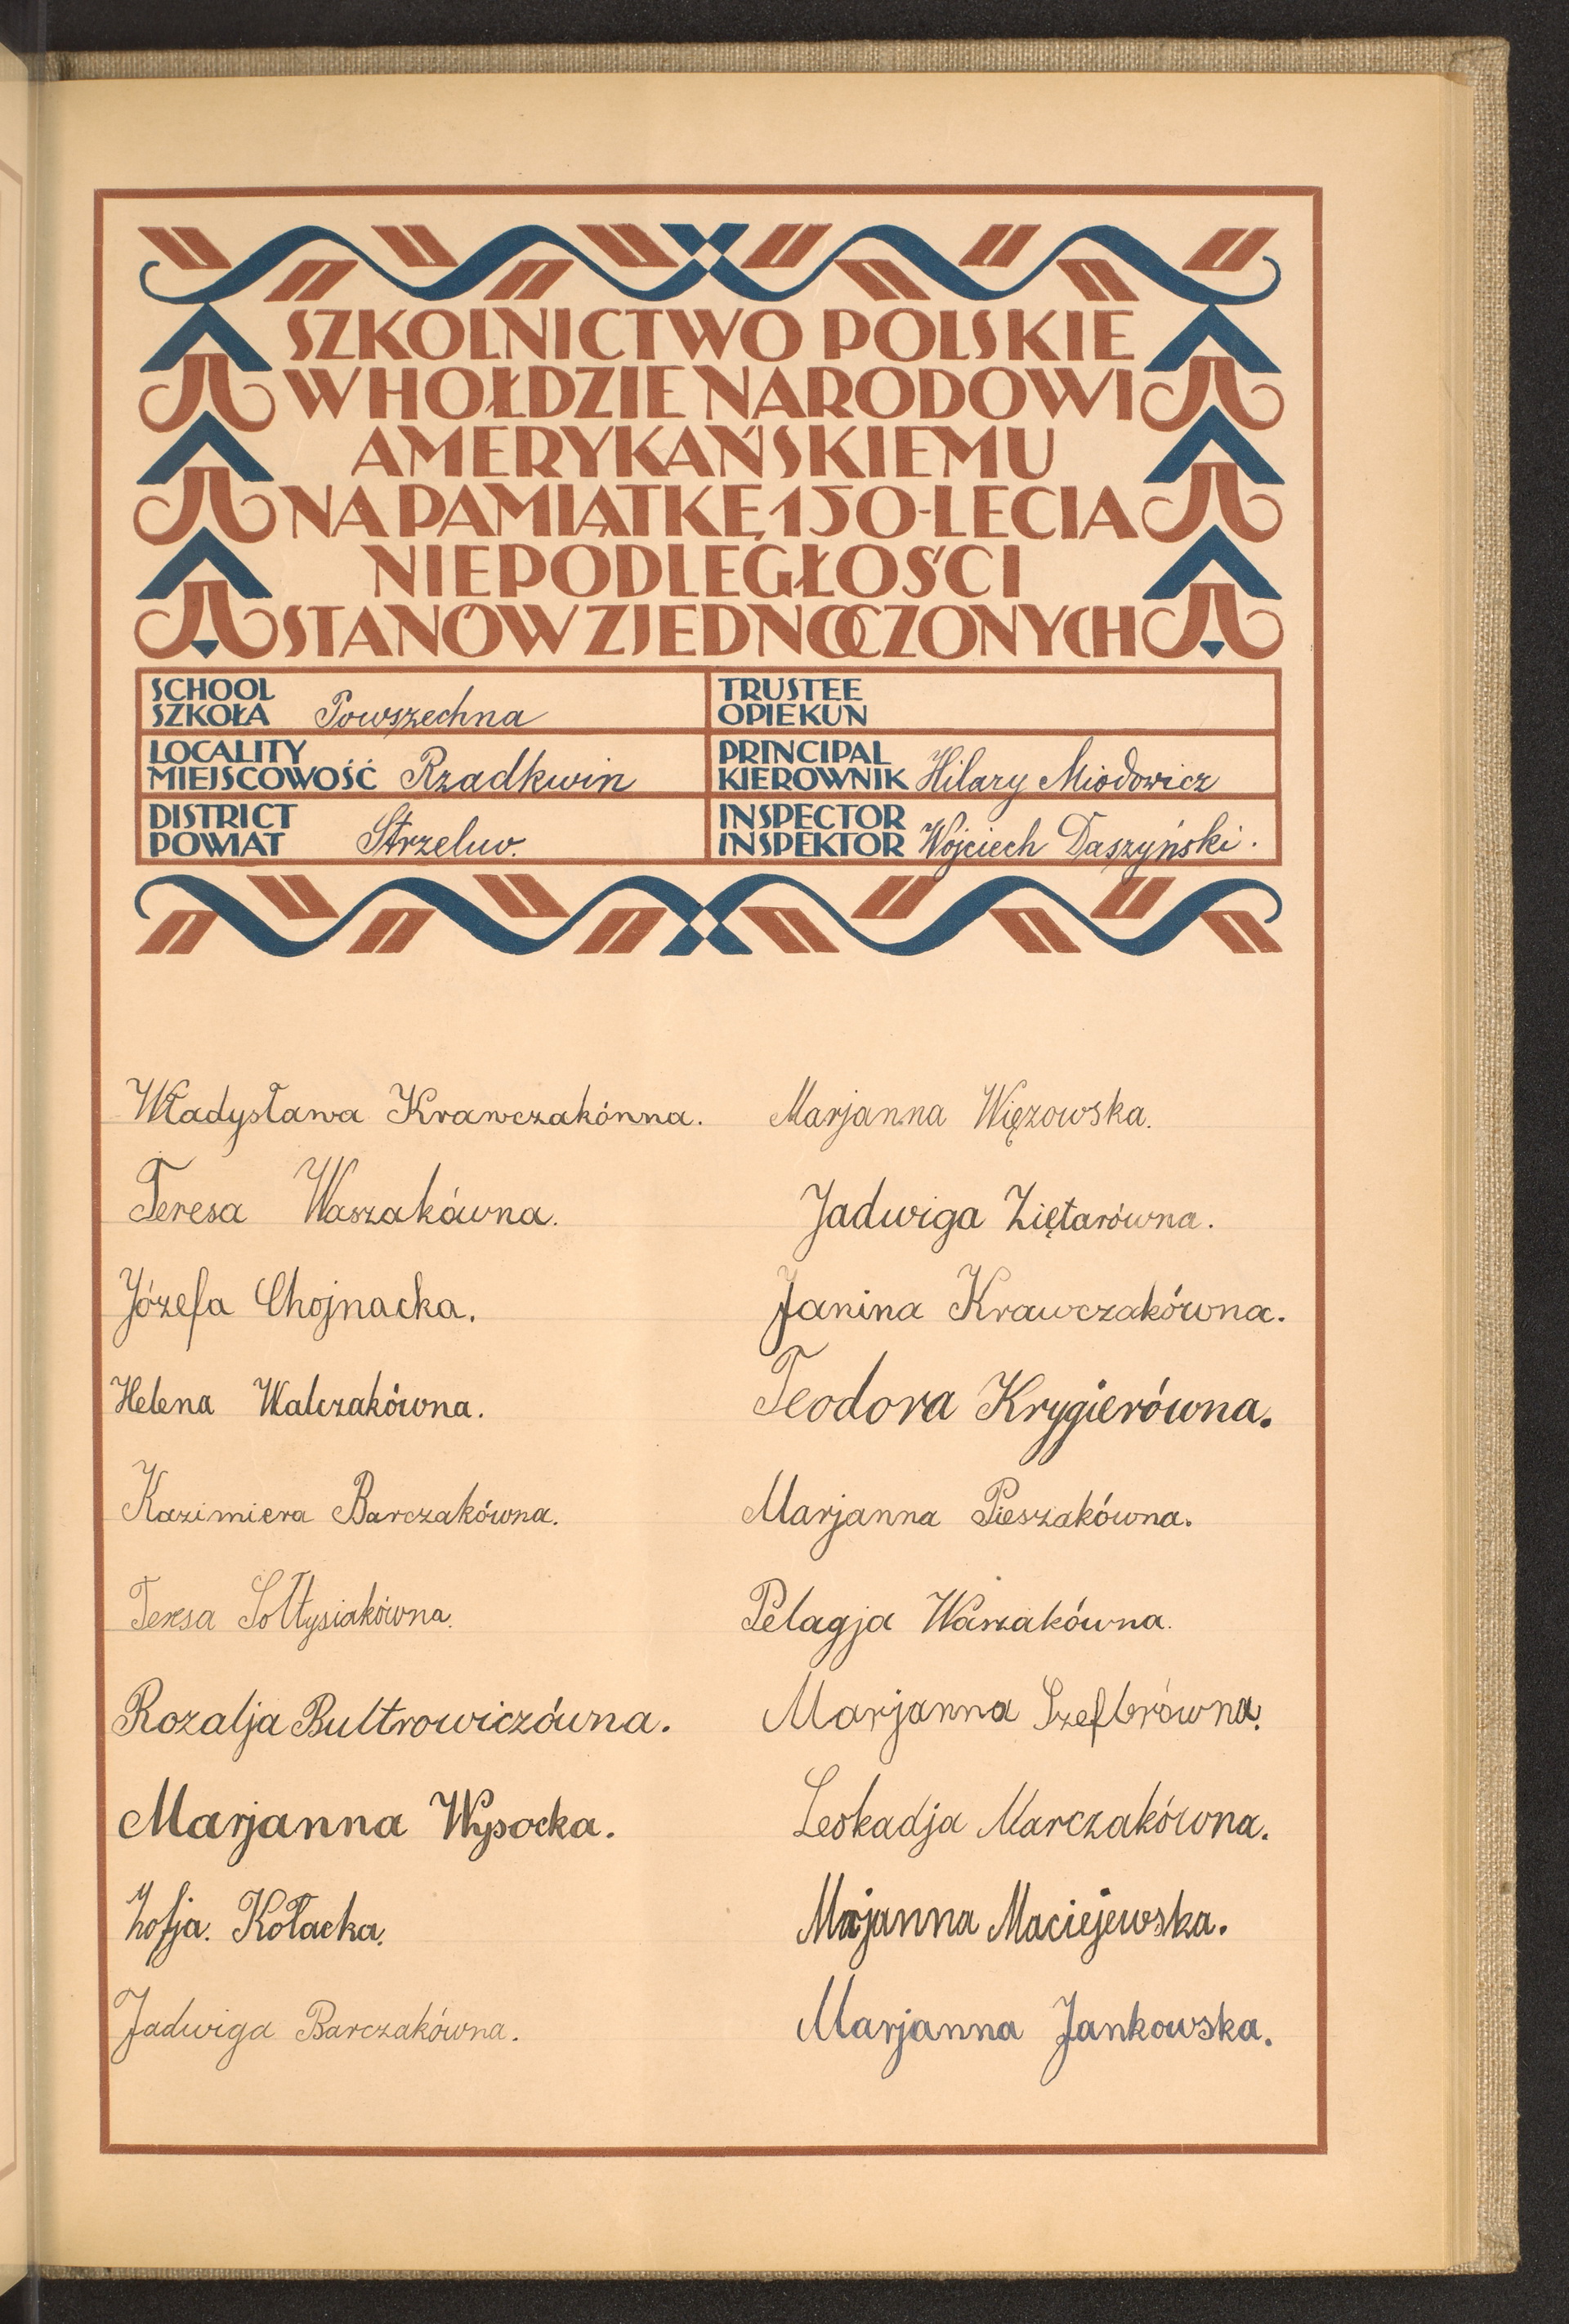 SZKOLNICTWO POLSKIE
W HOŁDZIE NARODOWI
AMERYKAŃSKIEMU
NA PAMIĄTKĘ 150-LECIA
NIEPODLEGŁOŚCI
STANÓW ZJEDNOCZONYCH
SCHOOL
SZKOŁA Powszechna
TRUSTEE
OPIEKUN
LOCALITY
MIEJSCOWOŚĆ Rzadkwin
PRINCIPAL
KIEROWNIK Hilary Miodowicz
DISTRICT
POWIAT Strzelno.
INSPECTOR
INSPEKTOR Wojciech Daszyński.
Władysława Krawczakónna.
Marjanna Więzowska.
Teresa Waszakówna.
Jadwiga Ziętarówna.
Józefa Chojnacka.
Janina Krawczakówna.
Helena Walczakówna.
Teodora Krygierówna.
Kazimiera Barczakówna.
Marjanna Pieszakówna.
Teresa Sołtysiakówna.
Pelagja Waszakówna.
Rozalja Bultrowiczówna.
Marjanna Szeflerówna.
Marjanna Wysocka.
Leokadja Marczakówna.
Zofja. Kołacka.
Marjanna Maciejewska.
Jadwiga Barczakówna.
Marjanna Jankowska.